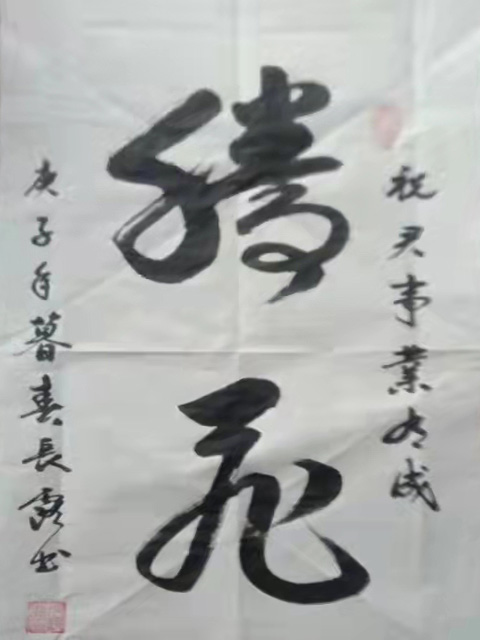 祝君事業有成
騰飛
庚子年暮春長露书